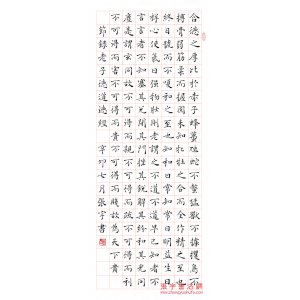 合德之厚比於赤子蜂蠆虺蛇不螫猛獸不據攫鳥不
搏骨弱筋柔而握固未知牝牡之合而全作精之至也
終日號而不嗄和之至也知和曰常知常曰明益生曰
祥心使氣曰強物壯則老謂之不道不道早已知者不
言言者不知塞其兌閉其門挫其銳解其紛和其光同
塵是謂玄同故不可得而親不可得而疏不可得而利
不可得而害不可得而貴不可得而賤故為天下貴
節錄老子德道德經 辛卯七月張宇書